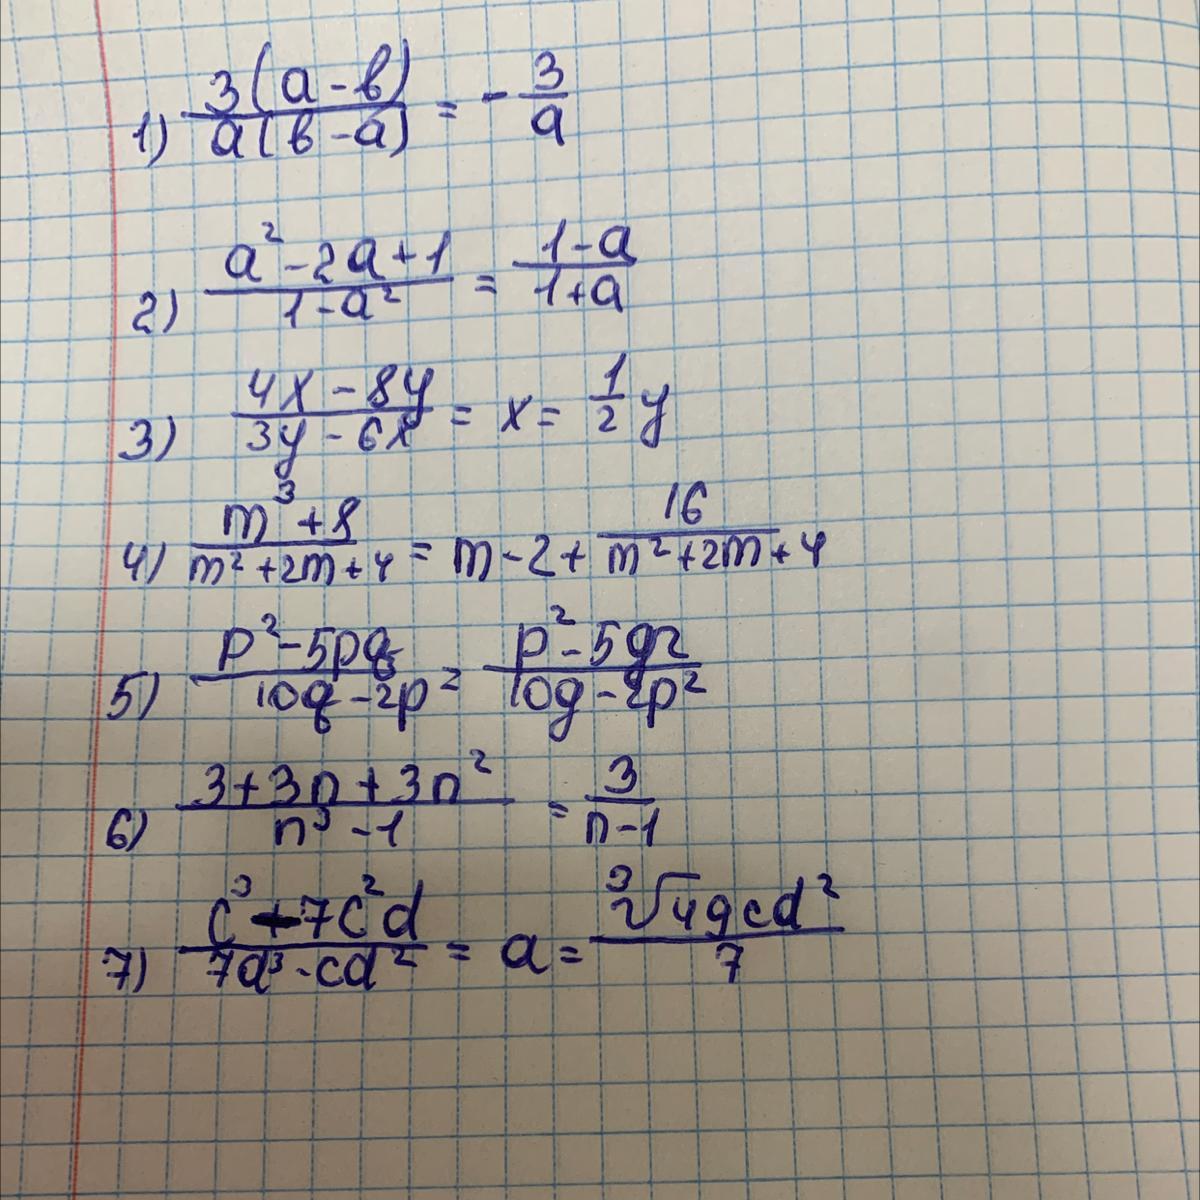 1) 3(a-b)/a(b-a) = - 3/a
2) a²-2a+1/1-a² = 1-a/1+a
3) 4x-8y/3y-6x = x = 1/2 y
4) m³+8/m²+2m+4 = m-2+ 16/m²+2m+4
5) p²-5pq/10q-2p² = p²-5q2/10g-2p²
6) 3+3n+3n²/n³-1 = 3/n-1
7) c³+7c²d/7d³-cd² = a = ³√49cd²/7